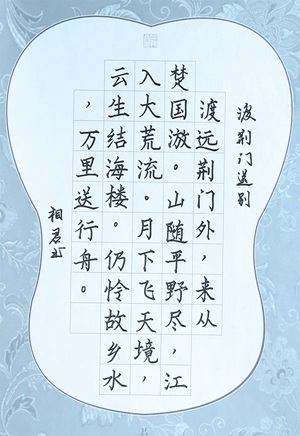 渡荆门送别
渡远荆门外，来从
楚国游。山随平野尽，江
入大荒流。月下飞天境，
云生结海楼。仍怜故乡水
，万里送行舟。
相君书